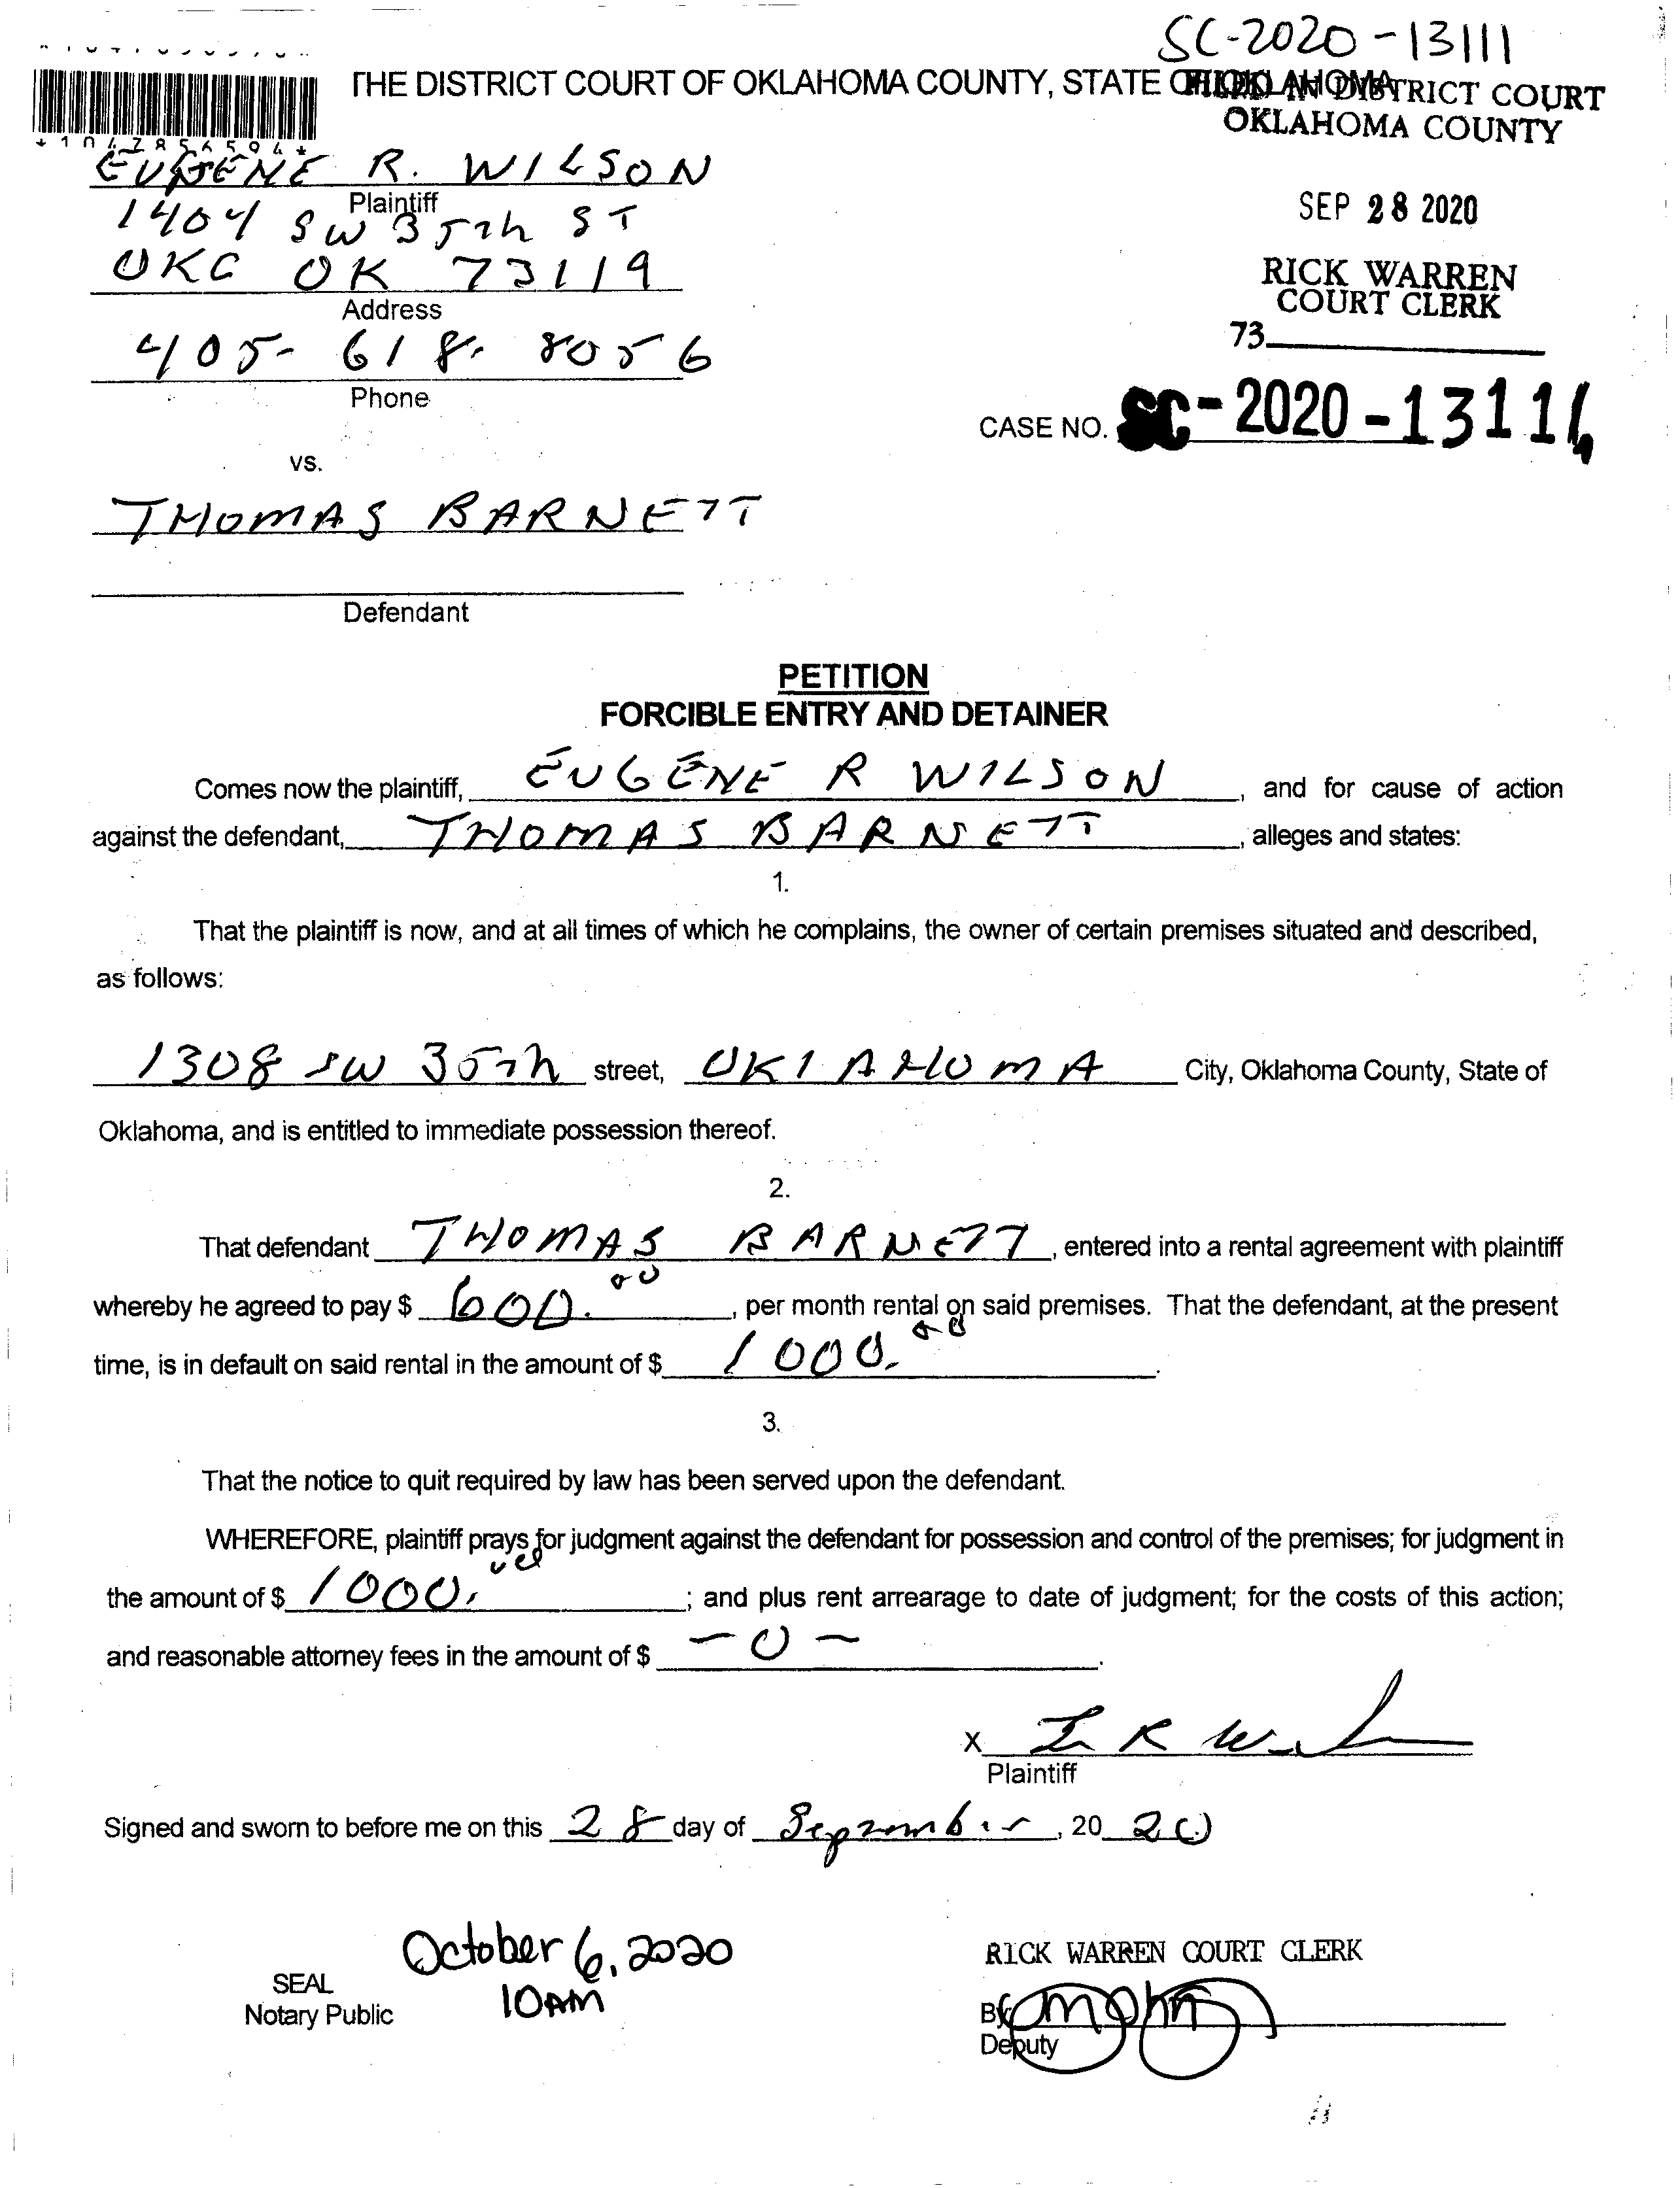 SC-2020-13111
THE DISTRICT COURT OF OKLAHOMA COUNTY, STATE OF OKLAHOMA
FILED IN DISTRICT COURT
OKLAHOMA COUNTY
EUGENE R. WILSON
Plaintiff
1404 SW 35th ST
SEP 28 2020
OKC OK 73119
Address
RICK WARREN
COURT CLERK
73
405-618-8056
Phone
CASE NO. SC-2020-1311
vs.
THOMAS BARNETT
Defendant
PETITION
FORCIBLE ENTRY AND DETAINER
Comes now the plaintiff, EUGENE R WILSON, and for cause of action
against the defendant, THOMAS BARNETT, alleges and states:
1.
That the plaintiff is now, and at all times of which he complains, the owner of certain premises situated and described,
as follows:
1308 SW 35th street, OKlAHOMA City, Oklahoma County, State of
Oklahoma, and is entitled to immediate possession thereof.
2.
That defendant THOMAS BARNETT, entered into a rental agreement with plaintiff
whereby he agreed to pay $ 600.00, per month rental on said premises. That the defendant, at the present
time, is in default on said rental in the amount of $ 1000.00.
3.
That the notice to quit required by law has been served upon the defendant.
WHEREFORE, plaintiff prays for judgment against the defendant for possession and control of the premises; for judgment in
the amount of $ 1000.00; and plus rent arrearage to date of judgment; for the costs of this action;
and reasonable attorney fees in the amount of $ -0-.
X E R W
Plaintiff
Signed and sworn to before me on this 28 day of September, 2020
October 6, 2020
10AM
SEAL
Notary Public
RICK WARREN COURT CLERK
By
Deputy